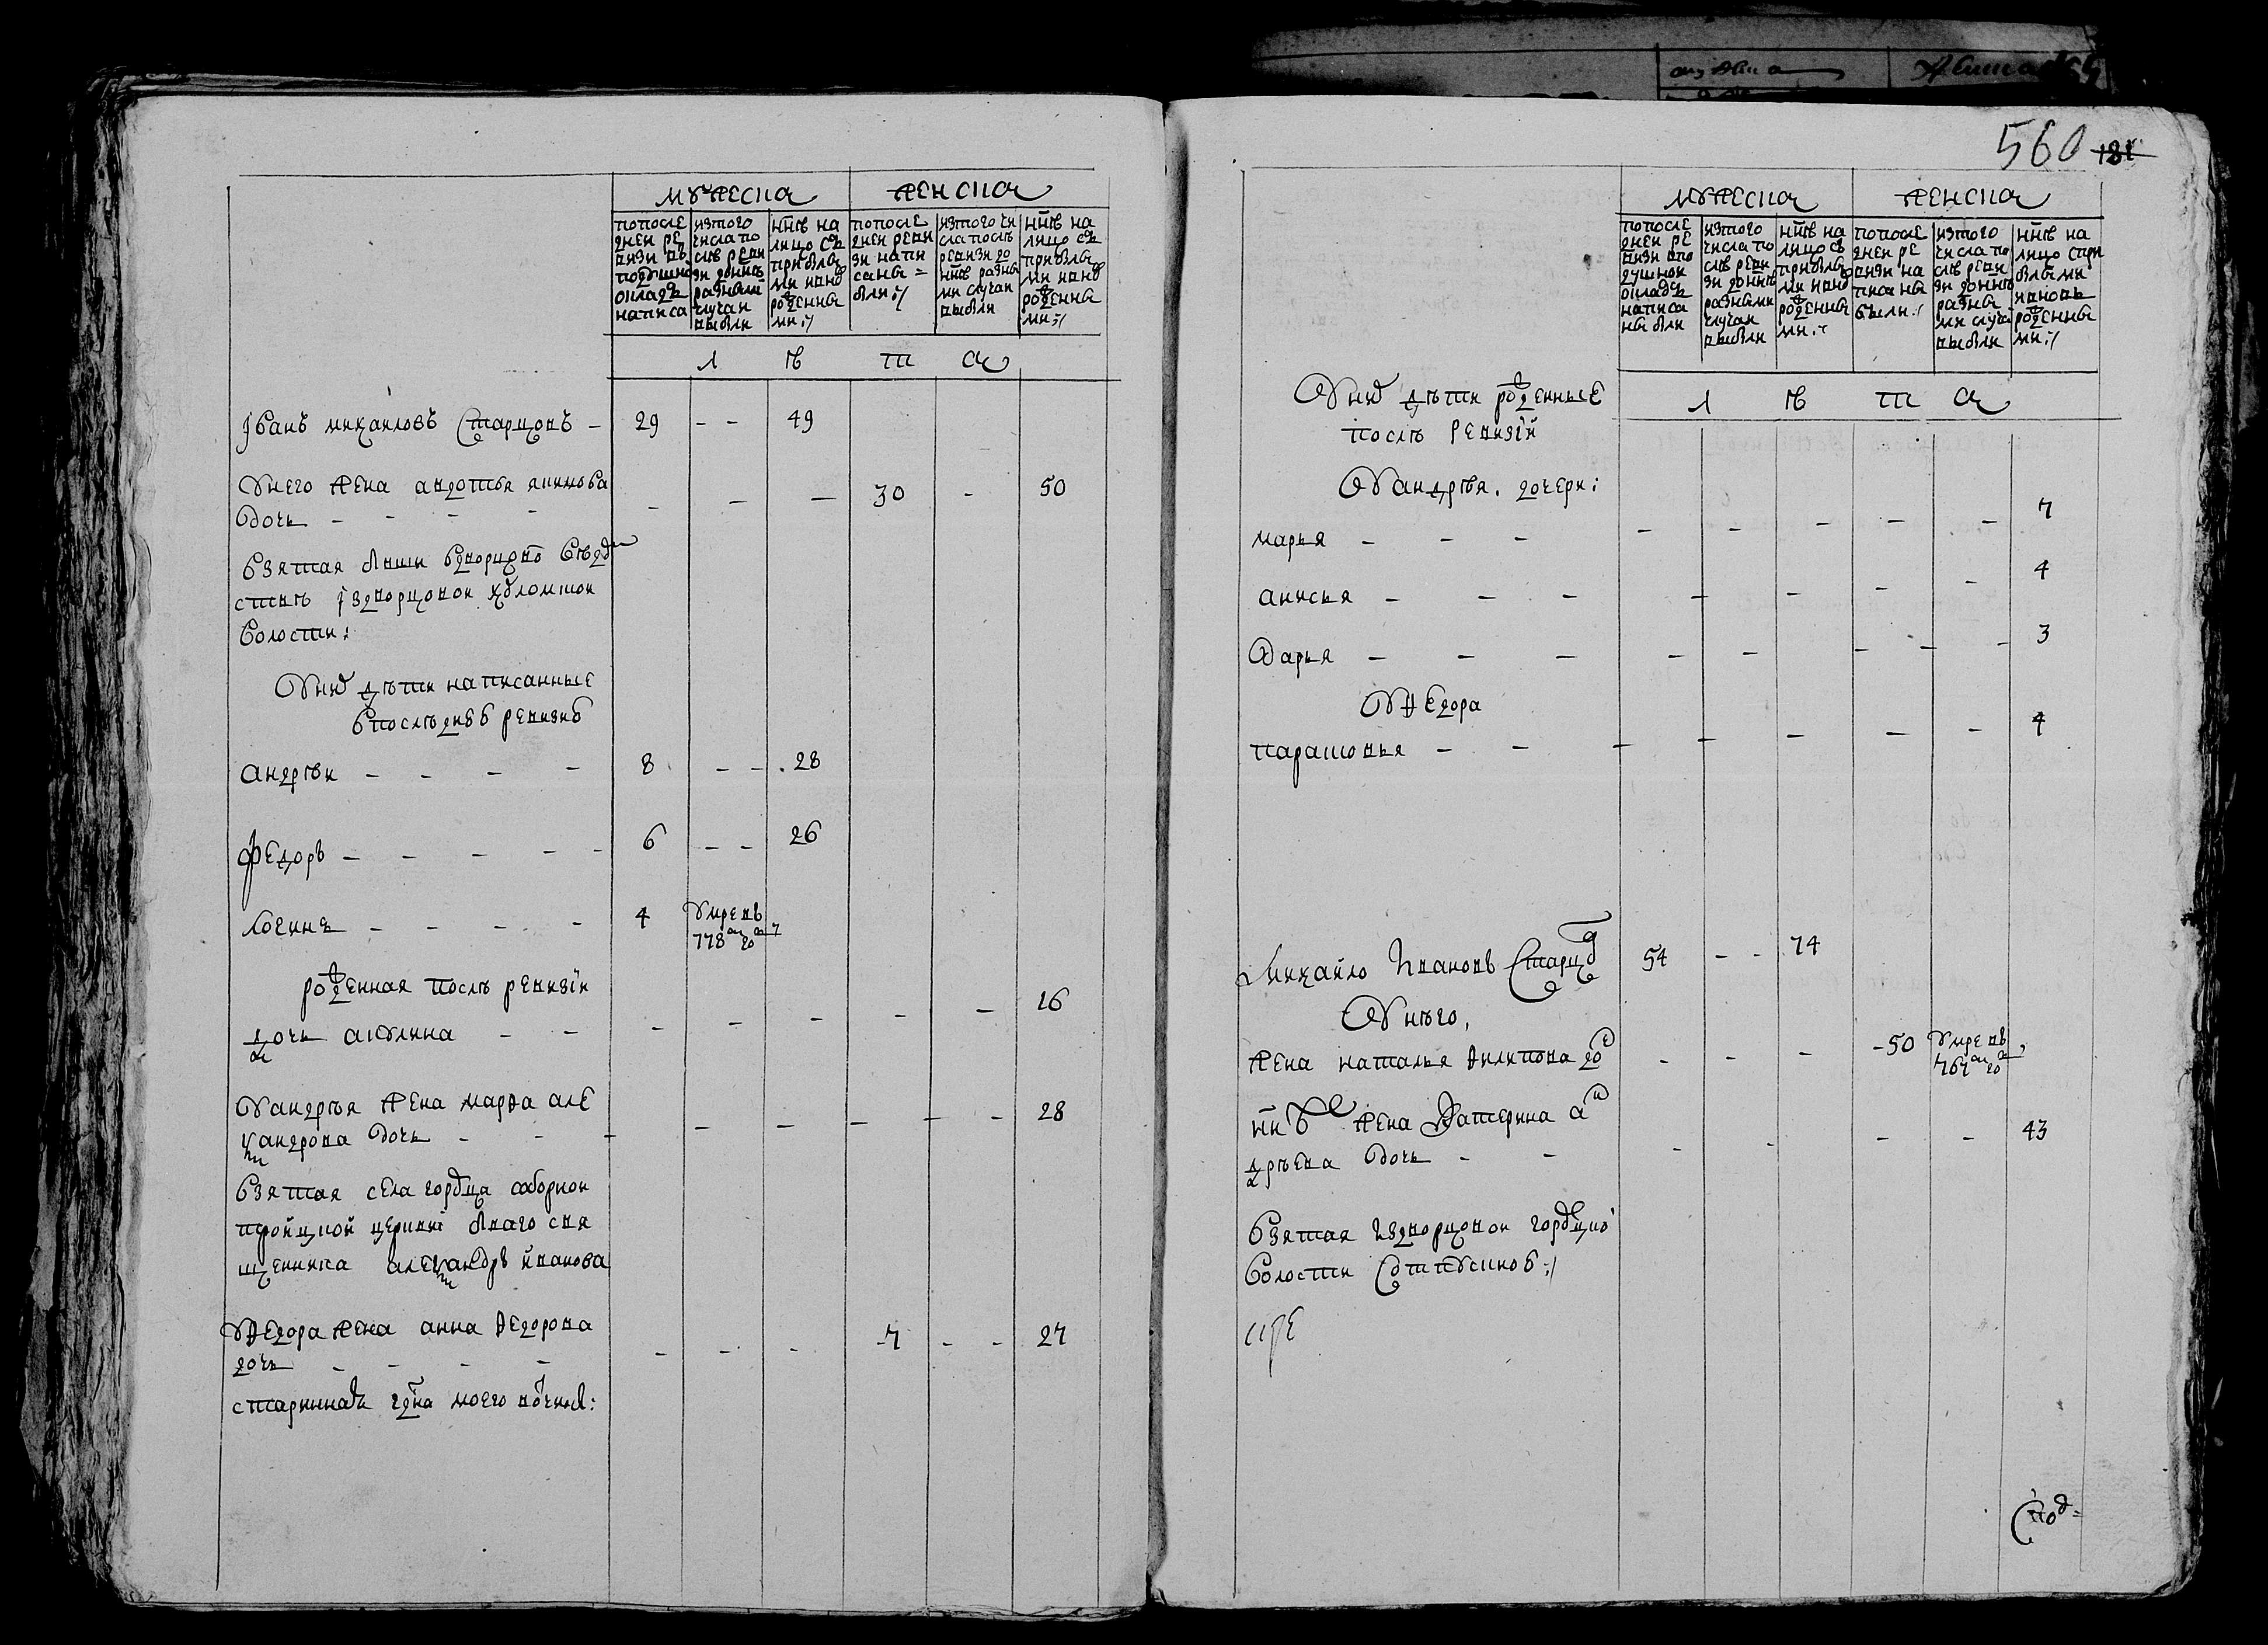 мужеска
женска
по после
дней ре
визи въ
подушно
окладъ
написа
изтого
числа по
слѣ реви
зи доннѣ
разными
случаи
выбыли
ннѣ на
лицо съ
прибылы
ми и вно
рожденны
ми
по после
дней реви
зи напи
саны
были
изтого чи
сла послѣ
ревизи до
ннѣ разны
ми случаи
выбыли
ннѣ на
лицо съ
прибылы
ми и вно
рожденны
ми
л ѣ т а
Іванъ михаиловъ Старцовъ - 29 - - 49
Унего жена авдотья якимова
дочь - - - - - - - 30 - 50
Взятая
ствѣ
волости:
Уних дѣти написанные
в последнею ревизию
андрѣи - - - - 8 - - 28
федоръ - - - - - 6 - - 26
логинъ - - - - 4 умре въ
778 м го
рожденная послѣ ревизіи
дочь акулина - - - - - - - 16
Уандрѣя жена марѳа але
ксандрова дочь - - - - - - - - 28
Взятая села городца соборной
троицкой церкви бывшаго свя
щенника александръ иванова
Уѳедора жена анна ѳедорова
дочь - - - - - - - 7 - - 27
старинная моего вотчины:
560 181
мужеска
женска
по после
дней ре
визи впо
душной
окладъ
написа
ны были
изтого
числа по
слѣ реви
зи доннѣ
разными
случаи
выбыли
ннѣ на
лицо съ
прибылы
ми и вно
рожденны
ми
по после
дней ре
визи на
писаны
были
изтого
числа по
слѣ реви
зи доннѣ
разны
ми случа
выбыли
ннѣ на
лицо спри
былыми
ивновь
рожденны
ми
л ѣ т а
Уних дѣти рожденные
послѣ ревизіи
Уандрѣя. дочери:
марья - - - - - - - - 7
анисья - - - - - - - 4
Дарья - - - - - - - - 3
Уѳедора
парасковья - - - - - - - 4
Михаило Ивановъ Старцо 54 - - 74
Унѣго,
жена наталья ѳилипова до - - - - 50 умре въ
767 м го
жена Катерина ан
дрѣева дочь - - - - - - 43
Взятая издворцовои городцко
волости
Под